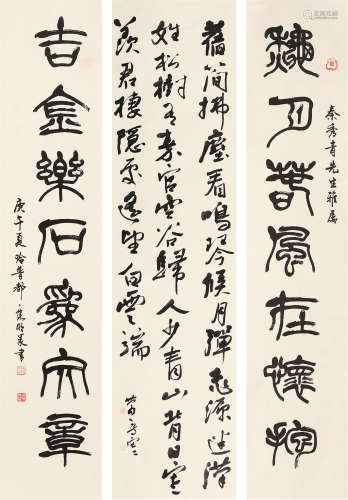 龝月春風在懷抱
秦秀青先生雅屬
舊簡拂塵看鳴琴候月彈桃源迷漢
姓松樹有秦官空谷歸人少青山背日寒
羨君棲隱處遙望白雲端
吉金樂石為文章
庚午夏於首都